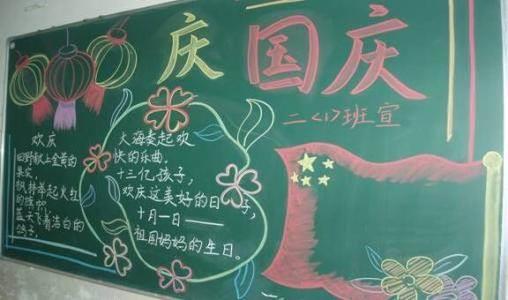 庆国庆
二<1>班宣
欢庆
田野献上金黄的
果实,
枫林举起火红
的旗帜,
蓝天飞着洁白的
鸽子,
大海奏起欢
快的乐曲。
十三亿孩子,
欢庆这美好的日子,
十月一日——
祖国妈妈的生日。